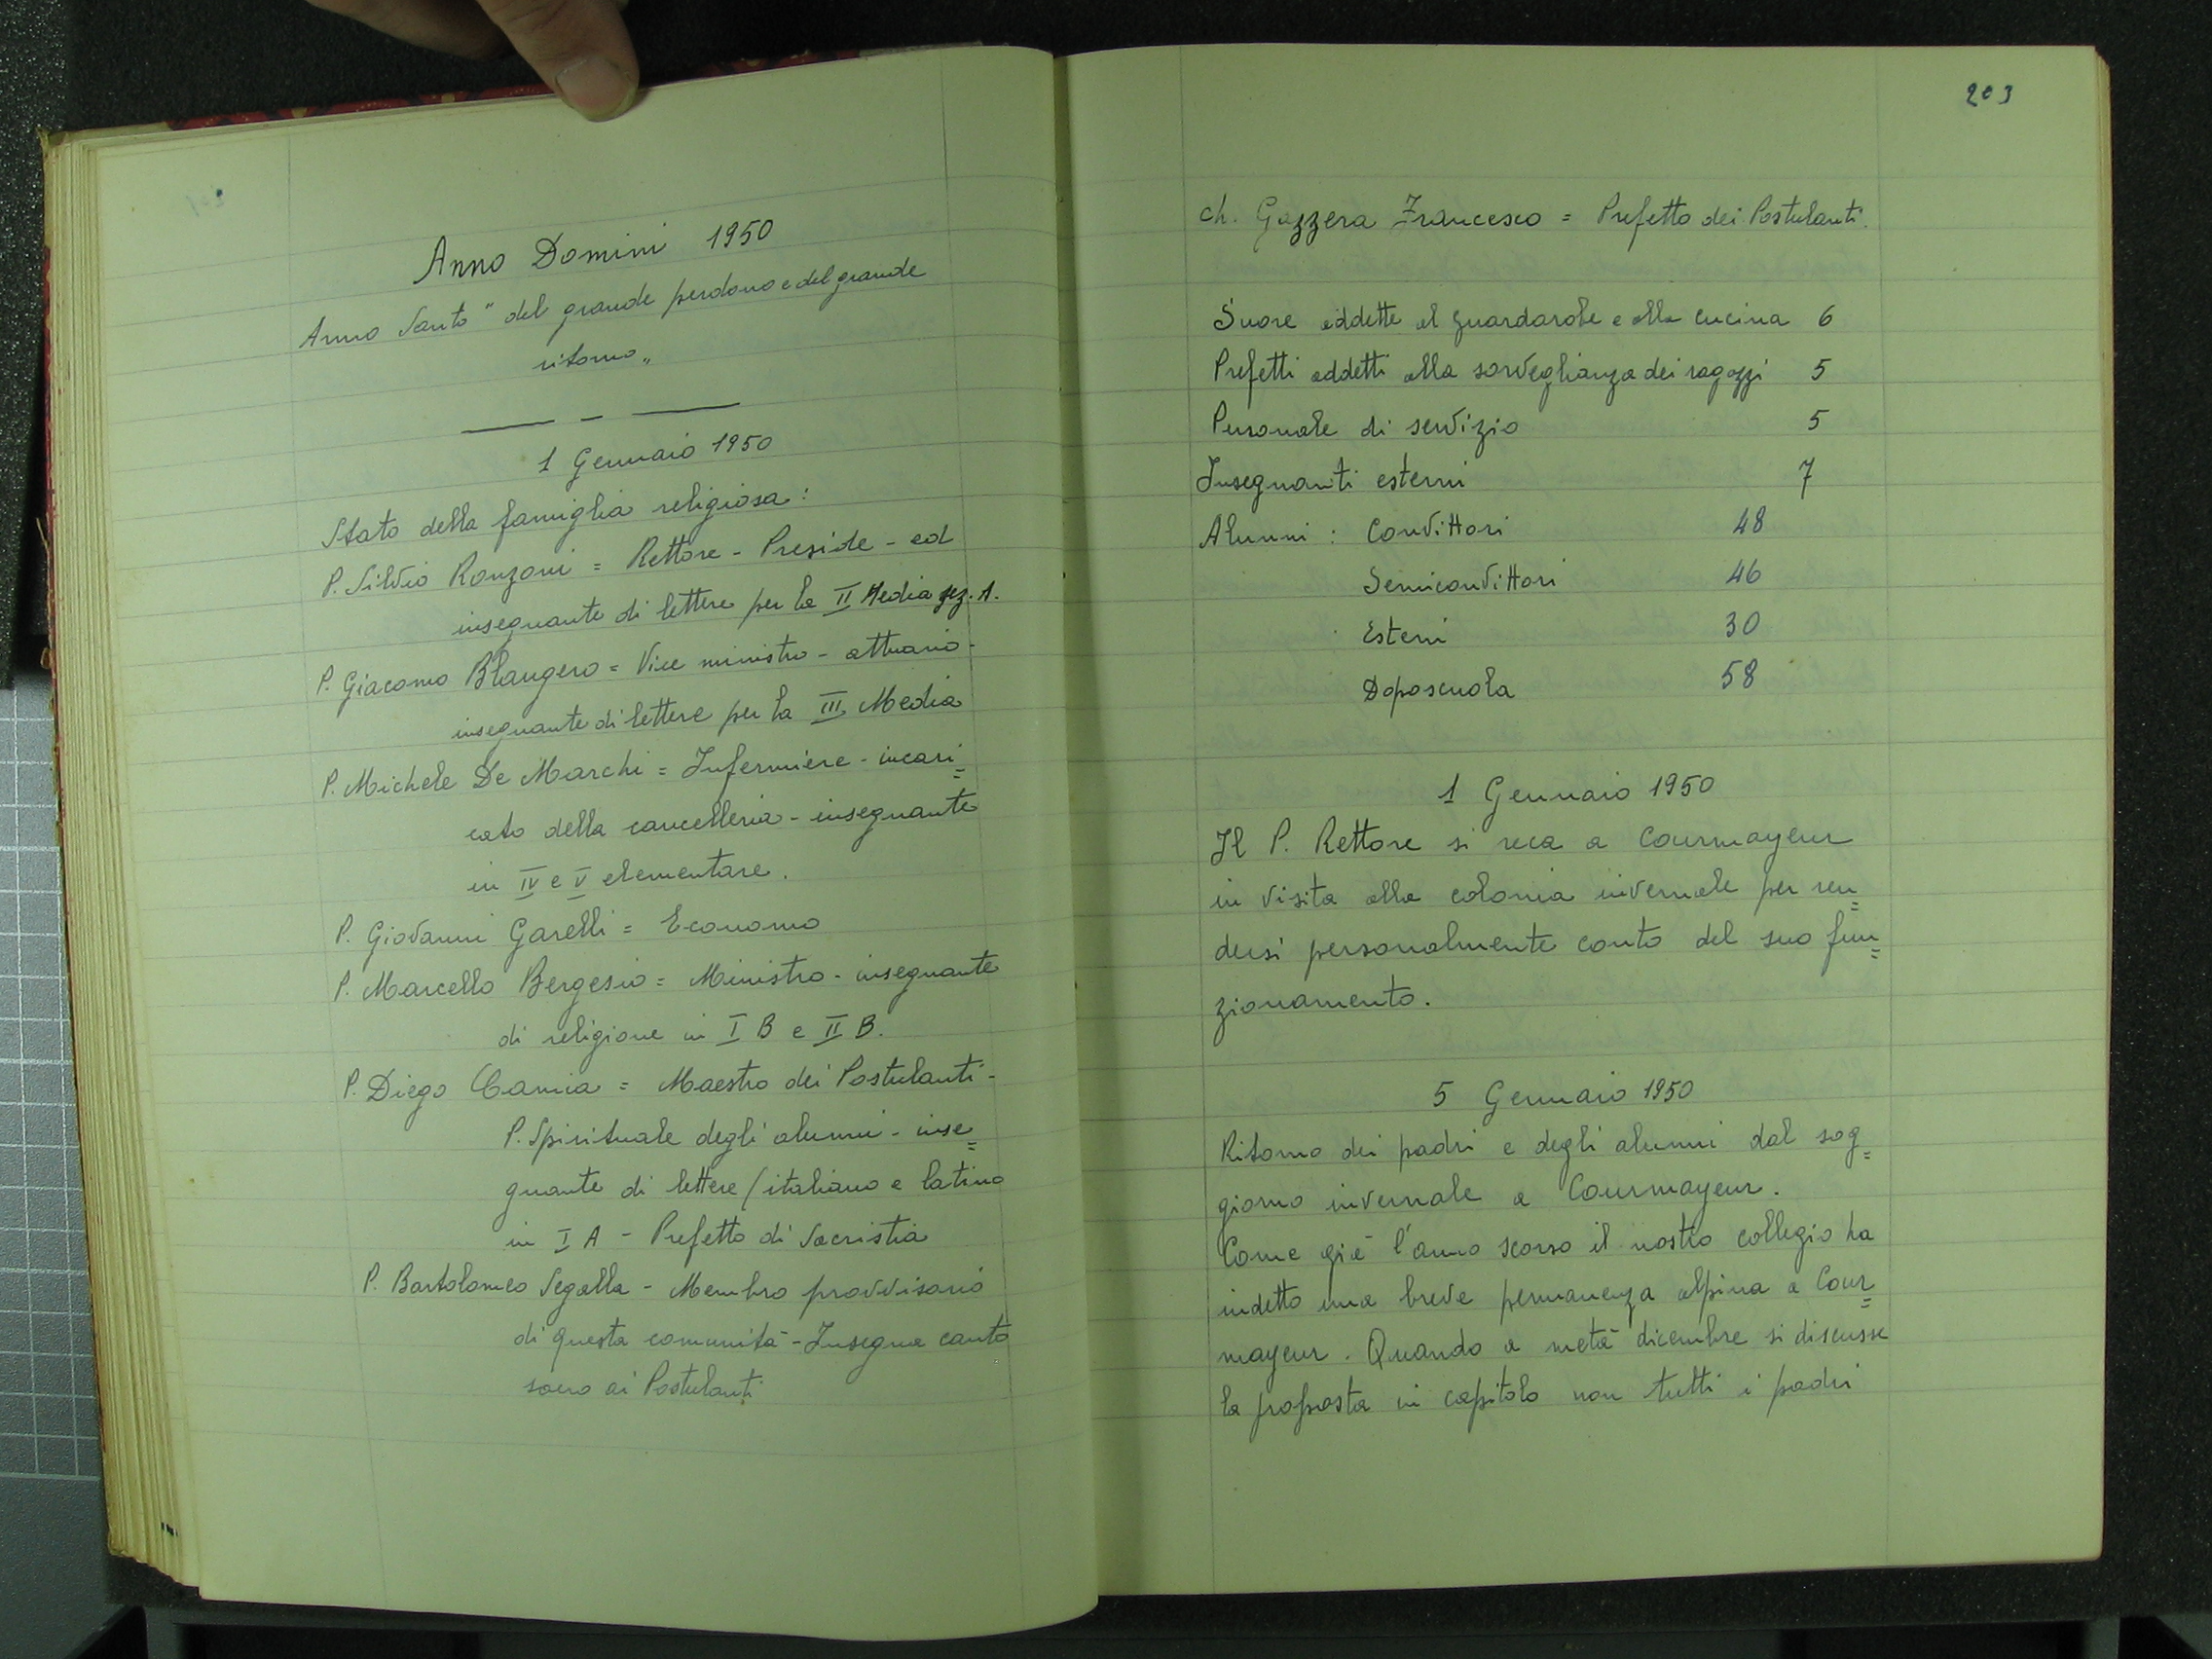 Anno Domini 1950
Anno Santo "del grande perdono e del grande
ritorno"
1 Gennaio 1950
Stato della famiglia religiosa:
P. Silvio Ronzoni = Rettore - Preside - ed
insegnante di lettere per la II Media sez. A.
P. Giacomo Blangero = Vice ministro - attuario -
insegnante di lettere per la III Media
P. Michele De Marchi = Infermiere - incari=
cato della cancelleria - insegnante
in IV e V elementare.
P. Giovanni Garelli = Economo
P. Marcello Bergesio = Ministro - insegnante
di religione in I B e II B.
P. Diego Camia = Maestro dei Postulanti -
P. Spirituale degli alunni - inse=
gnante di lettere (italiano e latino
in I A - Prefetto di Sacristia
P. Bartolomeo Segalla - Membro provvisorio
di questa comunità - Insegna canto
sacro ai Postulanti
203
ch. Gazzera Francesco = Prefetto dei Postulanti.
Suore addette al guardarobe e alla cucina 6
Prefetti addetti alla sorveglianza dei ragazzi 5
Personale di servizio 5
Insegnanti esterni 7
Alunni : Convittori 48
Semiconvittori 46
Esterni 30
Doposcuola 58
1 Gennaio 1950
Il P. Rettore si reca a Courmayeur
in visita alla colonia invernale per ren=
dersi personalmente conto del suo fun=
zionamento.
5 Gennaio 1950
Ritorno dei padri e degli alunni dal sog=
giorno invernale a Courmayeur.
Come già l'anno scorso il nostro collegio ha
indetto una breve permanenza alpina a Cour=
mayeur. Quando a metà dicembre si discusse
la proposta in capitolo non tutti i padri